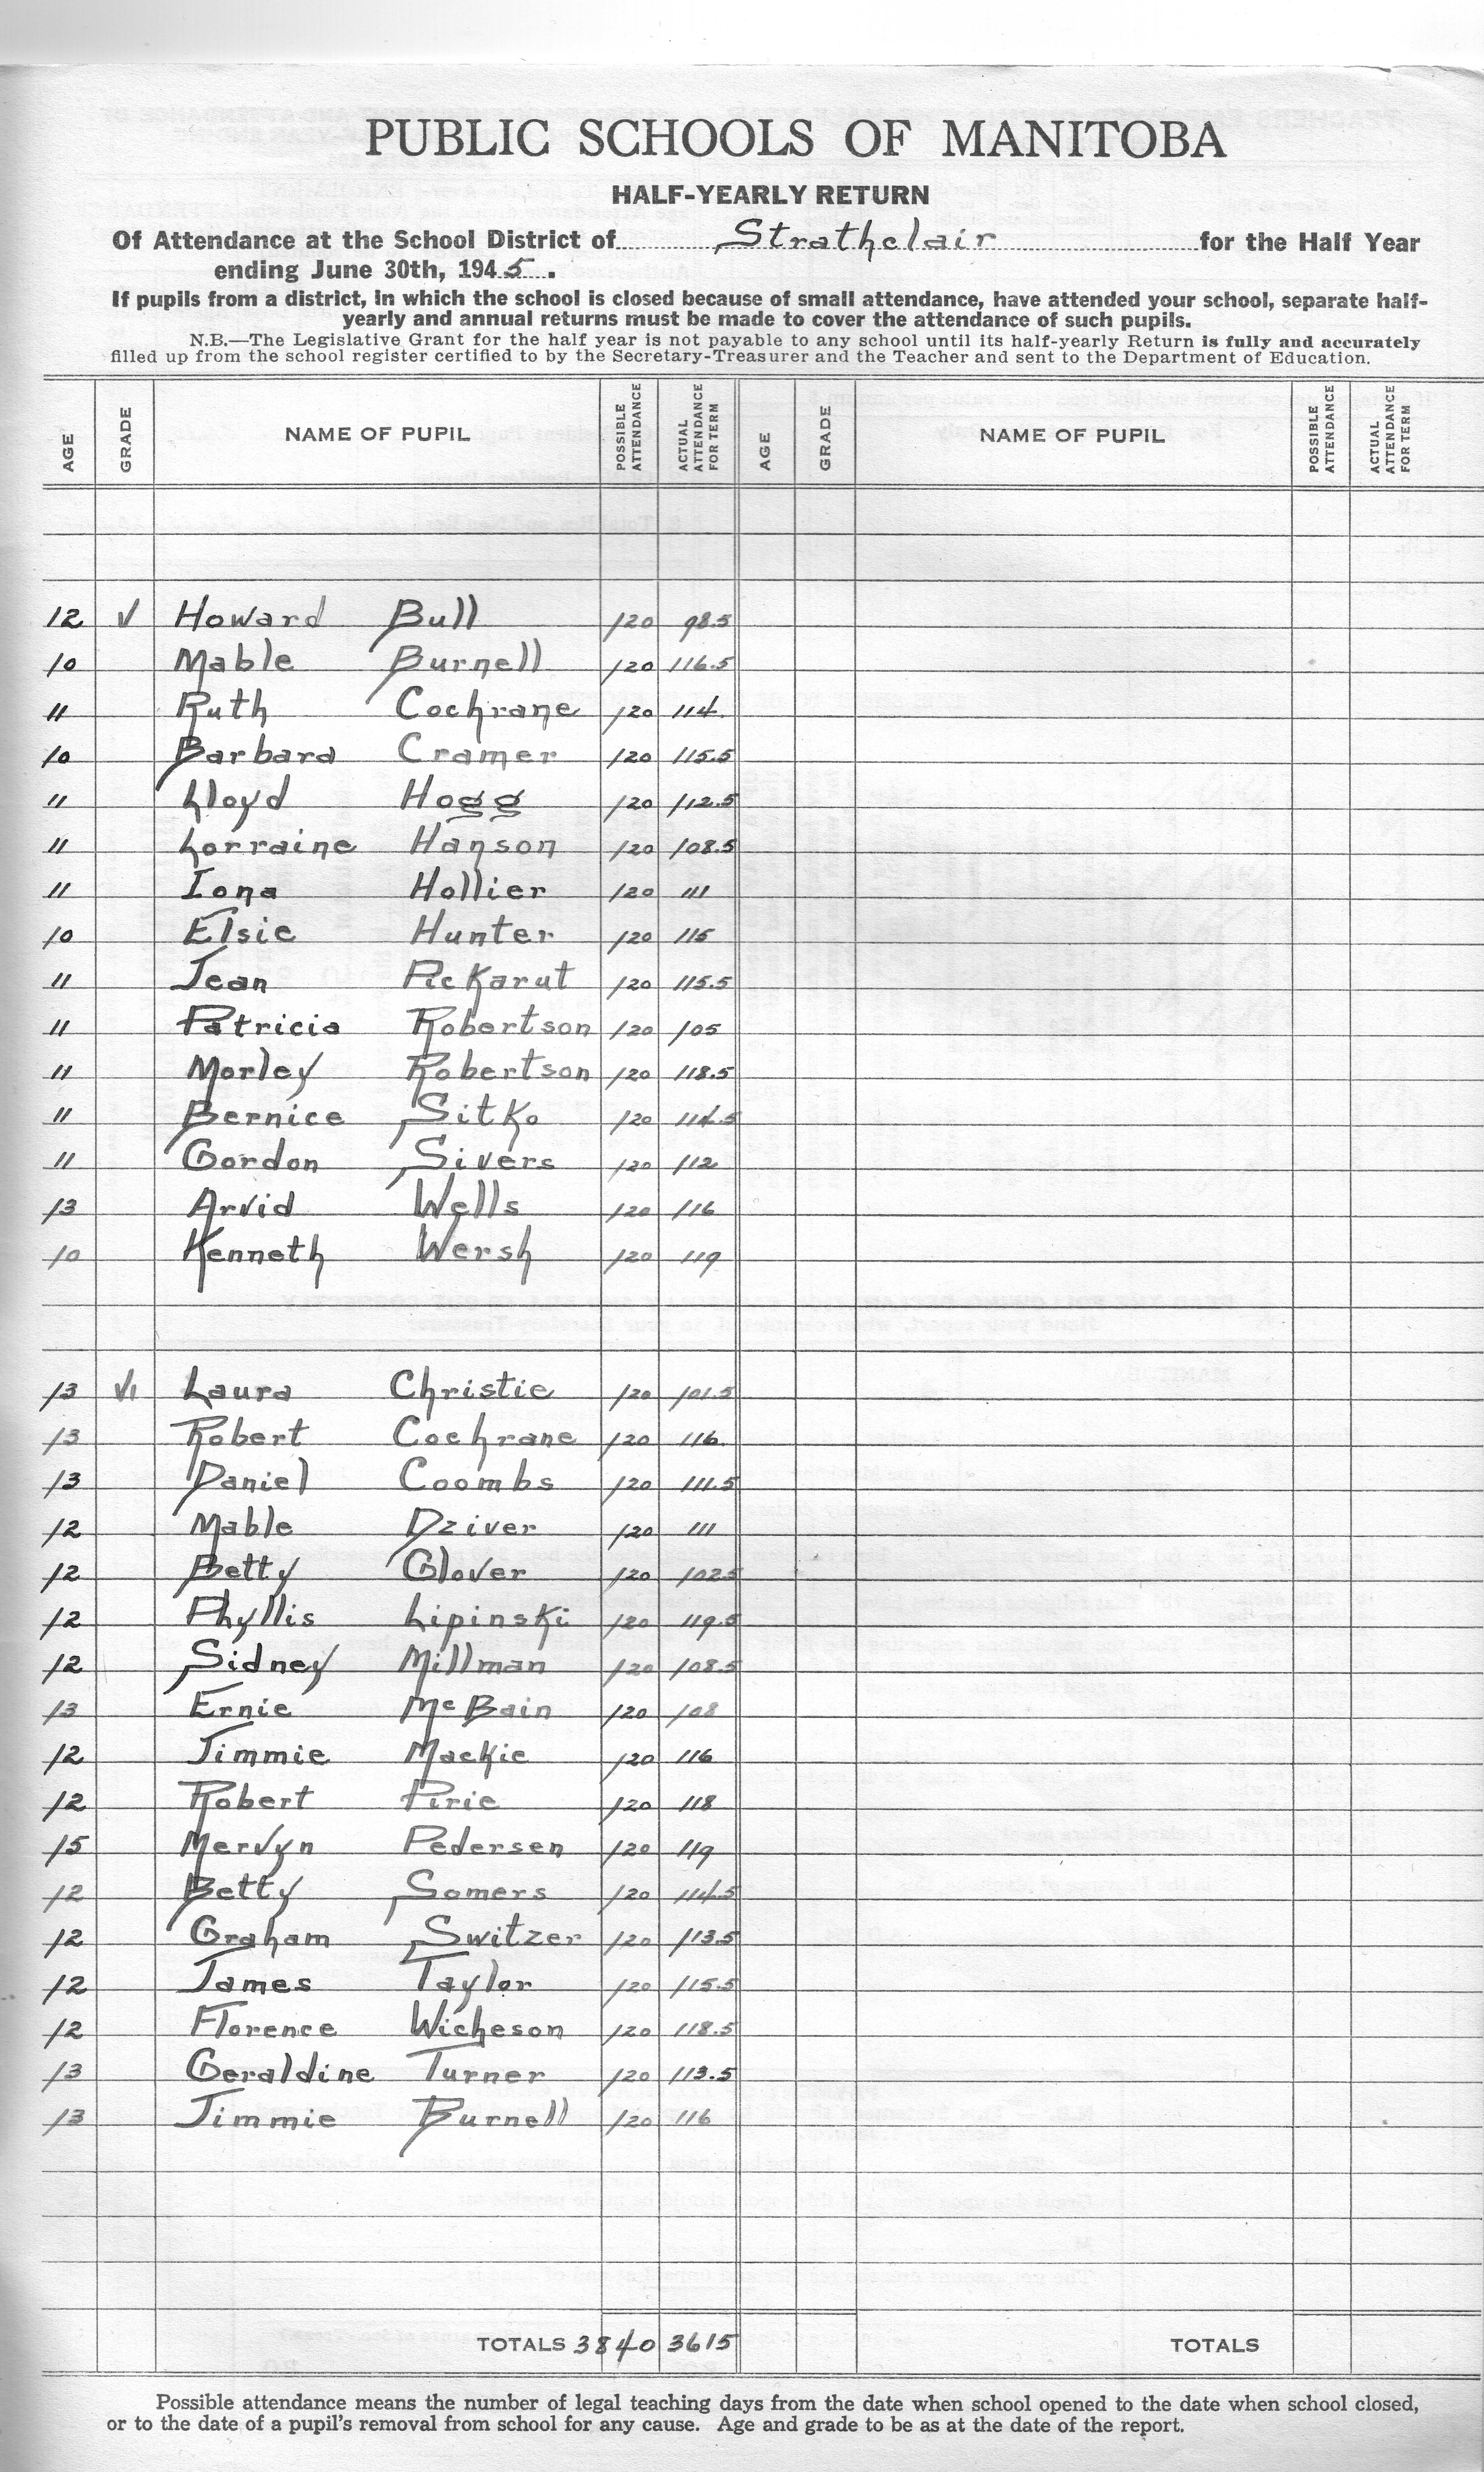 PUBLIC SCHOOLS OF MANITOBA
HALF-YEARLY RETURN
Of Attendance at the School District of Strathclair for the Half Year
ending June 30th, 1945.
If pupils from a district, in which the school is closed because of small attendance, have attended your school, separate half-
yearly and annual returns must be made to cover the attendance of such pupils.
N.B.—The Legislative Grant for the half year is not payable to any school until its half-yearly Return is fully and accurately
filled up from the school register certified to by the Secretary-Treasurer and the Teacher and sent to the Department of Education.
AGE GRADE NAME OF PUPIL POSSIBLE ATTENDANCE ACTUAL ATTENDANCE FOR TERM AGE GRADE NAME OF PUPIL POSSIBLE ATTENDANCE ACTUAL ATTENDANCE FOR TERM
12 V Howard Bull 120 98.5
10 Mable Burnell 120 116.5
11 Ruth Cochrane 120 114
10 Barbara Cramer 120 115.5
11 Lloyd Hogg 120 112.5
11 Lorraine Hanson 120 108.5
11 Iona Hollier 120 111
10 Elsie Hunter 120 115
11 Jean Pickarut 120 115.5
11 Patricia Robertson 120 105
11 Morley Robertson 120 118.5
11 Bernice Sitko 120 114.5
11 Gordon Sivers 120 112
13 Arvid Wells 120 116
10 Kenneth Wersh 120 119
13 VI Laura Christie 120 101.5
13 Robert Cochrane 120 116
13 Daniel Coombs 120 111.5
12 Mable Dziver 120 111
12 Betty Glover 120 102.5
12 Phyllis Lipinski 120 119.5
12 Sidney Millman 120 108.5
13 Ernie McBain 120 108
12 Jimmie Mackie 120 116
12 Robert Pirie 120 118
15 Mervyn Pedersen 120 119
12 Betty Somers 120 114.5
12 Graham Switzer 120 113.5
12 James Taylor 120 115.5
12 Florence Wicheson 120 118.5
13 Geraldine Turner 120 113.5
13 Jimmie Burnell 120 116
TOTALS 3840 3615 TOTALS
Possible attendance means the number of legal teaching days from the date when school opened to the date when school closed,
or to the date of a pupil's removal from school for any cause. Age and grade to be as at the date of the report.